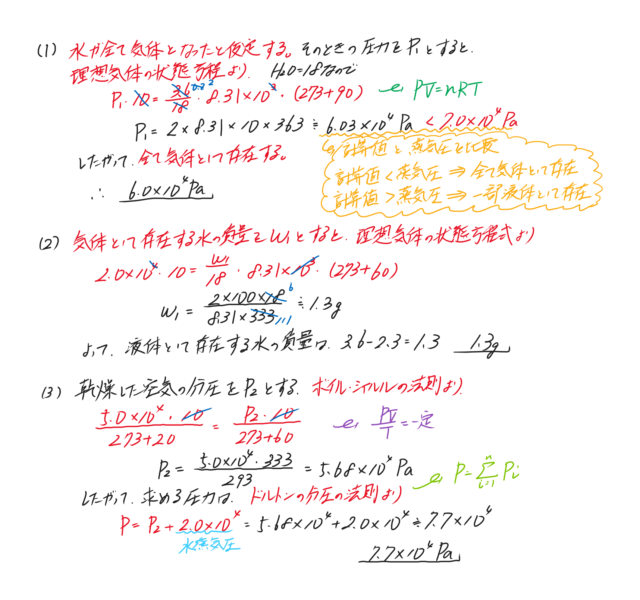 (1) 水が全て気体となったと仮定する。そのときの圧力をP₁とすると、
理想気体の状態方程より H₂O=18なので
P₁・10 = 36/18・8.31×10³・(273+90) PV=nRT
P₁=2×8.31×10×363≒6.03×10⁴Pa<7.0×10⁴Pa
計算値と蒸気圧を比較
したがって、全て気体として存在する。
計算値<蒸気圧⇒全て気体として存在
∴ 6.0×10⁴Pa
計算値>蒸気圧⇒一部液体として存在
(2) 気体として存在する水の質量をw₁とすると、理想気体の状態方程式より
2.0×10⁴・10 = w₁/18・8.31×10³・(273+60)
w₁ = 2×100×18/8.31×333 ≒ 1.3g
6
111
よって、液体として存在する水の質量は、3.6-2.3=1.3 1.3g
(3) 乾燥した空気の分圧をP₂とする。ボイル・シャルルの法則より
5.0×10⁴・10/273+20 = P₂・10/273+60 PV/T=一定
P₂ = 5.0×10⁴・333/293 = 5.68×10⁴Pa
P=Σⁿᵢ₌₁Pᵢ
したがって、求める圧力は、ドルトンの分圧の法則より
P=P₂+2.0×10⁴=5.68×10⁴+2.0×10⁴≒7.7×10⁴
水蒸気圧
7.7×10⁴Pa